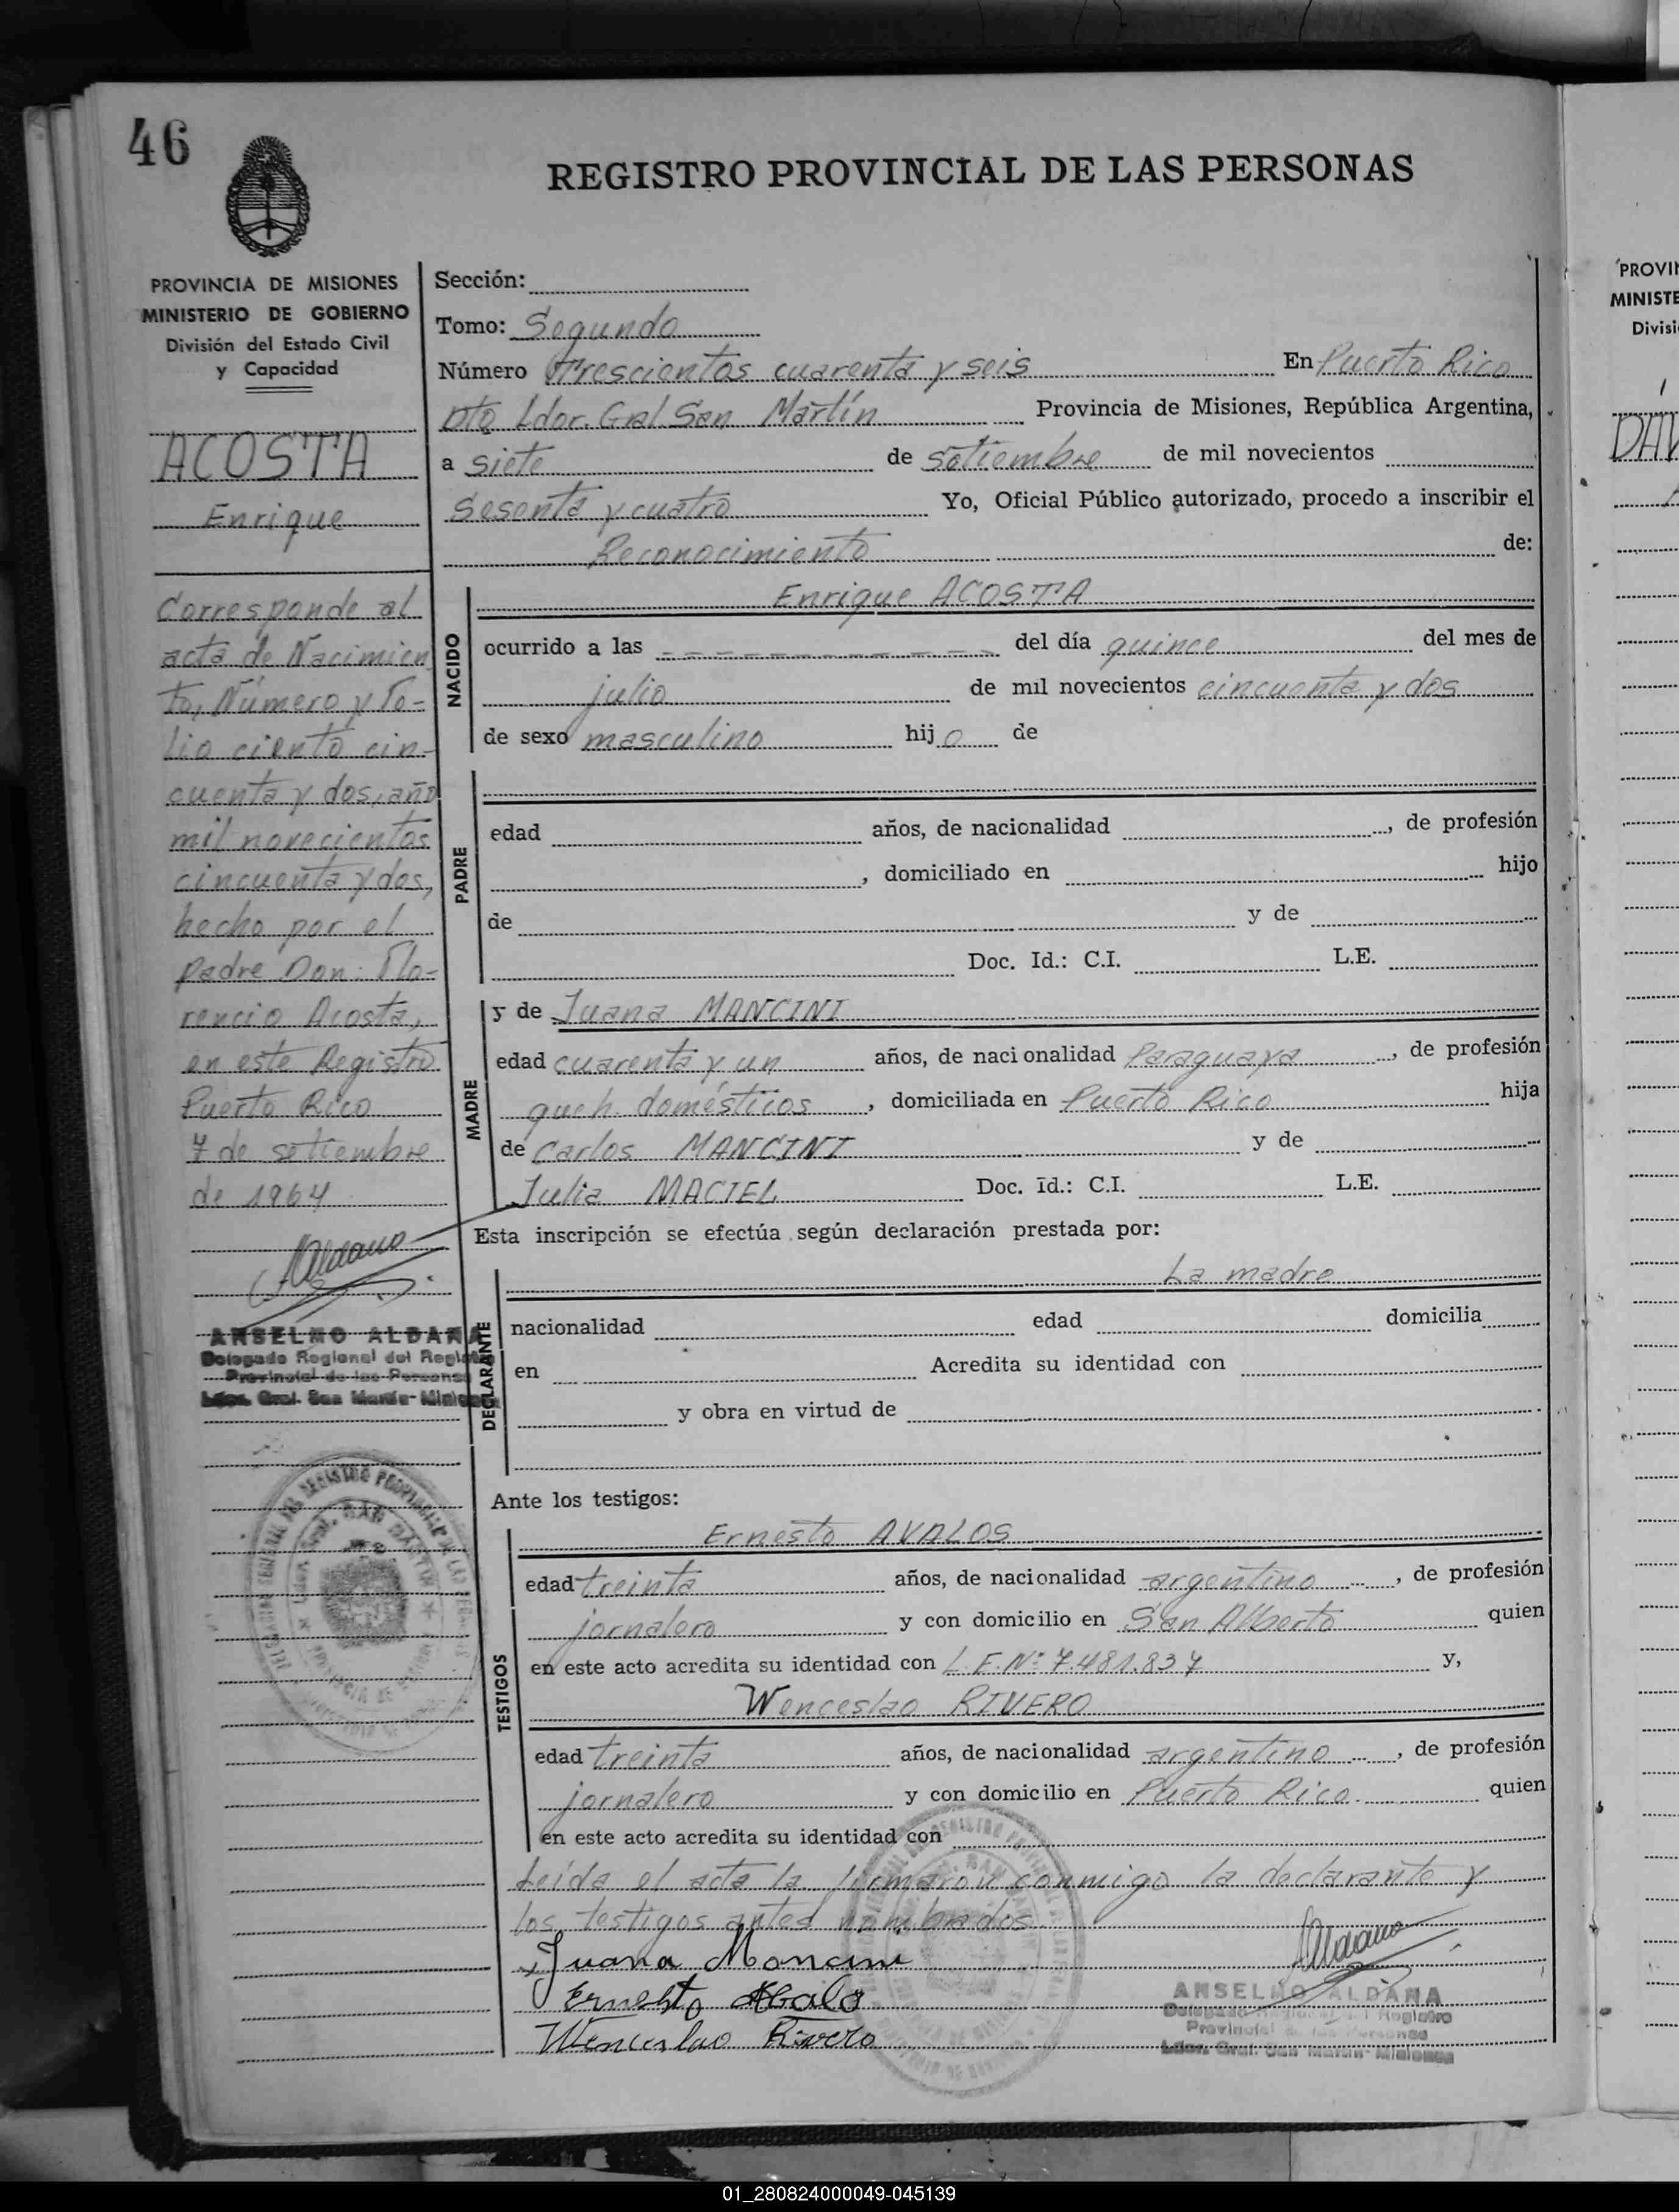 46
REGISTRO PROVINCIAL DE LAS PERSONAS
PROVINCIA DE MISIONES
MINISTERIO DE GOBIERNO
División del Estado Civil
y Capacidad
ACOSTA
Enrique
Corresponde al
acta de Nacimien
to, Número y Fo-
lio ciento cin-
cuenta y dos, año
mil novecientos
cincuenta y dos,
hecho por el
padre Don: Flo-
rencio Acosta,
en este Registro
Puerto Rico
7 de setiembre
de 1964
Aldana
ANSELMO ALDANA
Delegado Regional del Registro
Provincial de las Personas
Ldor. Gral. San Martín - Misiones
Sección:
Tomo: Segundo
Número Trescientos cuarenta y seis En Puerto Rico
Dto Ldor. Gral. San Martín Provincia de Misiones, República Argentina,
a siete de setiembre de mil novecientos
Sesenta y cuatro Yo, Oficial Público autorizado, procedo a inscribir el
Reconocimiento de:
NACIDO
Enrique ACOSTA
ocurrido a las del día quince del mes de
julio de mil novecientos cincuenta y dos
de sexo masculino hijo de
PADRE
edad años, de nacionalidad , de profesión
, domiciliado en hijo
de y de
Doc. Id.: C.I. L.E.
MADRE
y de Juana MANCINI
edad cuarenta y un años, de nacionalidad Paraguaya , de profesión
queh. domésticos , domiciliada en Puerto Rico hija
de Carlos MANCINI y de
Julia MACIEL Doc. Id.: C.I. L.E.
Esta inscripción se efectúa según declaración prestada por:
DECLARANTE
La madre
nacionalidad edad domicilia
en Acredita su identidad con
y obra en virtud de
Ante los testigos:
TESTIGOS
Ernesto AVALOS
edad treinta años, de nacionalidad argentino , de profesión
jornalero y con domicilio en San Alberto quien
en este acto acredita su identidad con L.E. Nº 7.481.837 y,
Wenceslao RIVERO
edad treinta años, de nacionalidad argentino , de profesión
jornalero y con domicilio en Puerto Rico. quien
en este acto acredita su identidad con
Leída el acta la firmaron conmigo la declarante y
los testigos antes nombrados
Juana Moncini
Ernesto Abalo
Wenceslao Rivero
Aldana
ANSELMO ALDANA
Delegado Regional del Registro
Provincial de las Personas
Ldor. Gral. San Martín - Misiones
PROVIN
MINISTE
Divisi
DAV
01_280824000049-045139